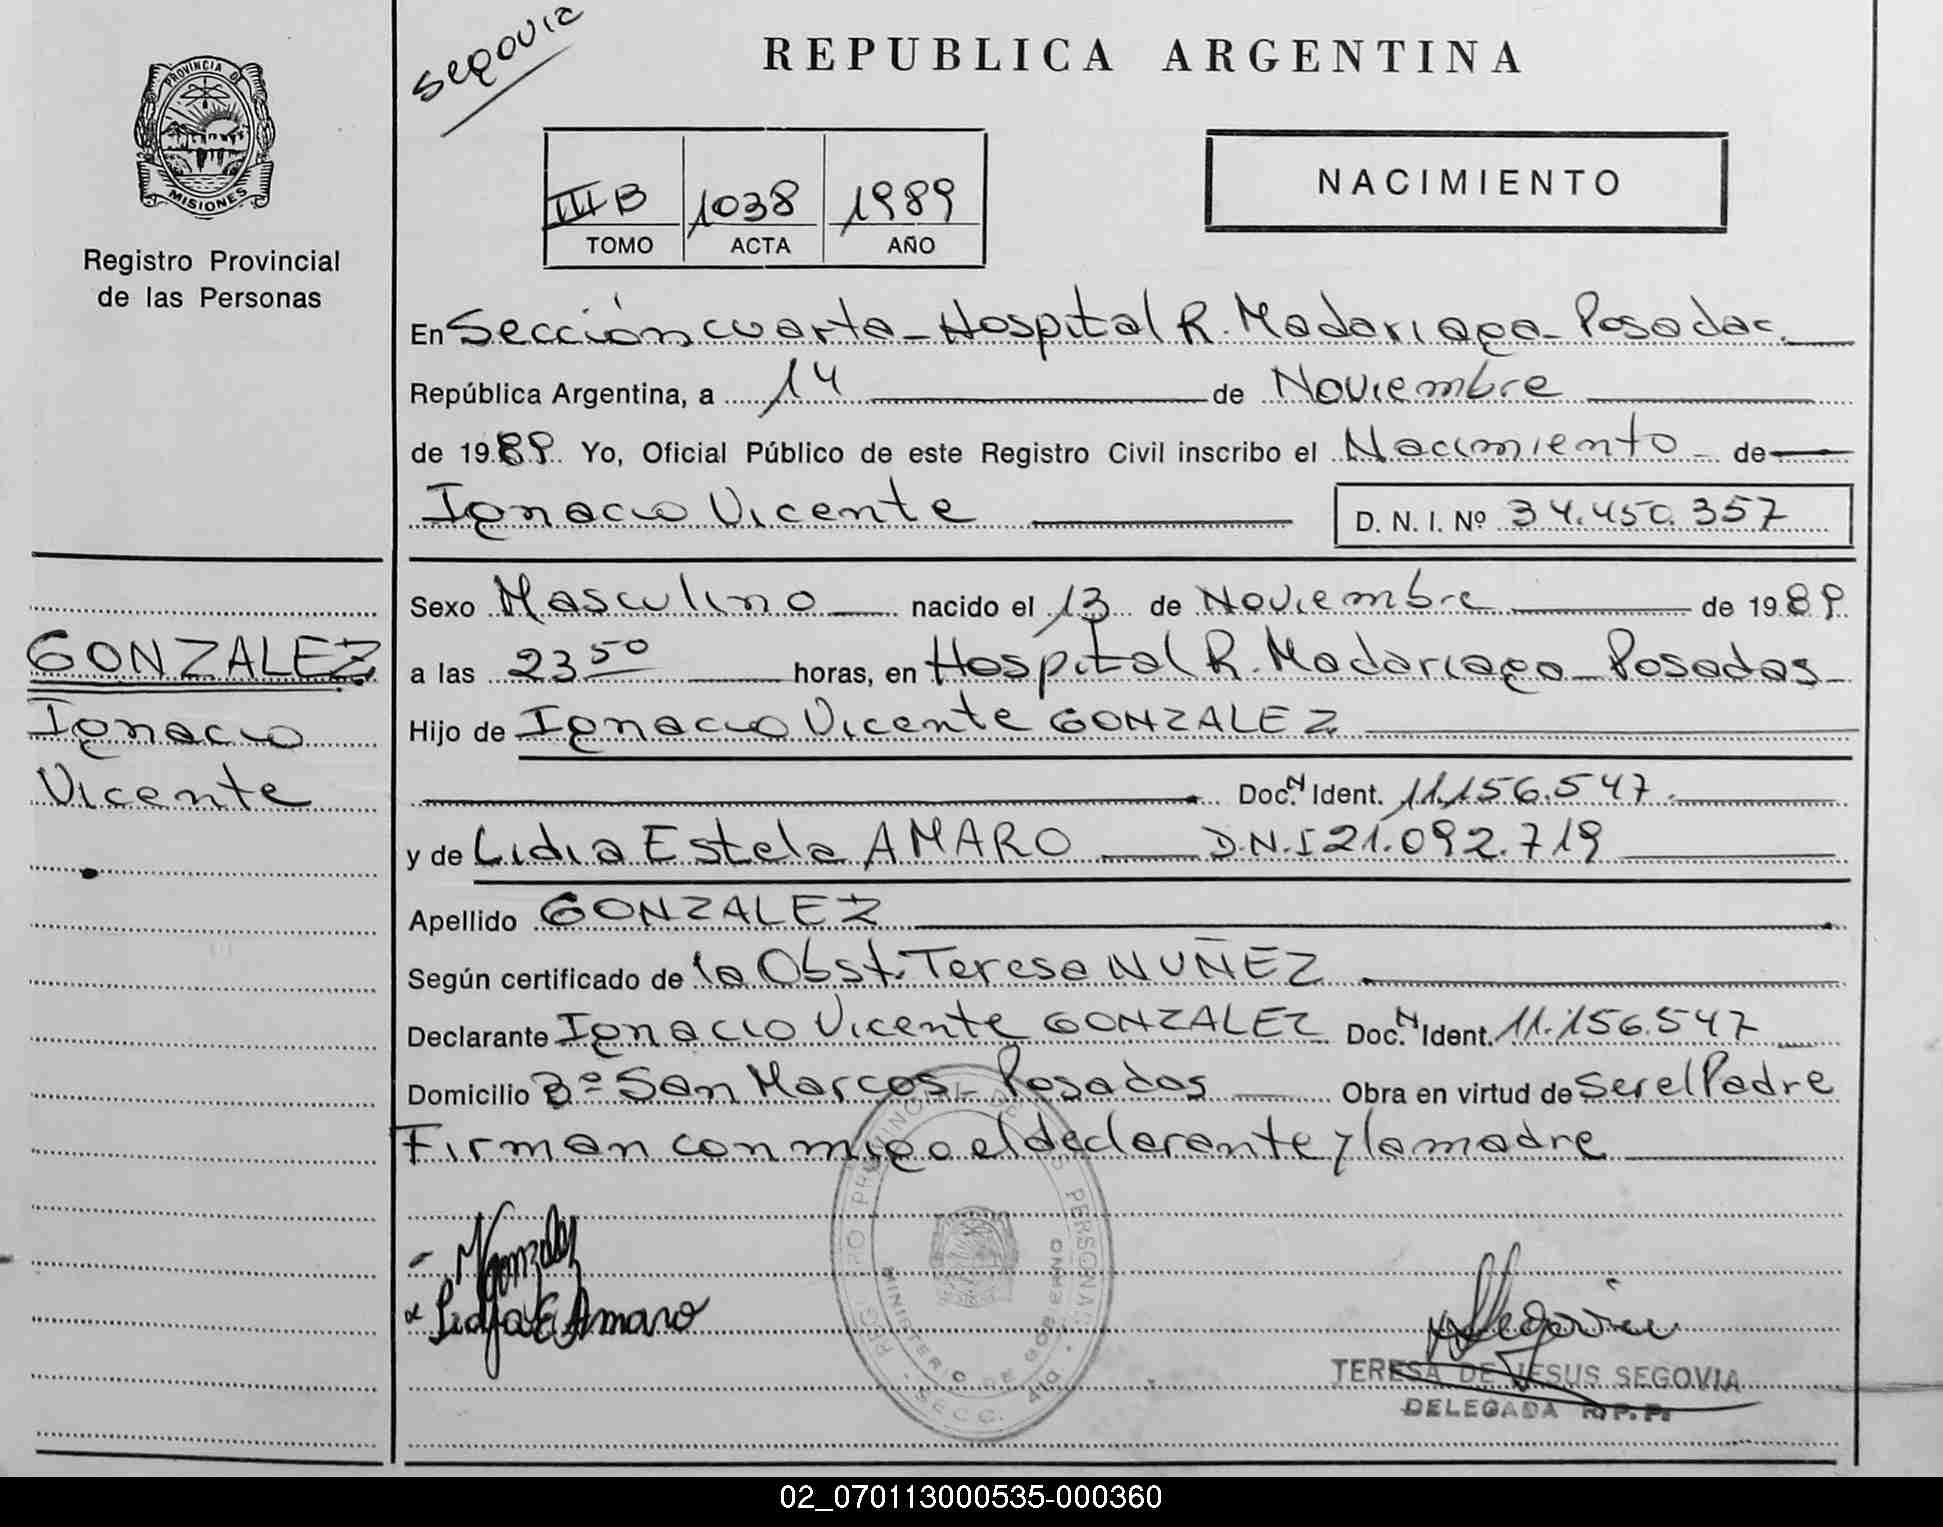 Segovia
REPUBLICA ARGENTINA
PROVINCIA D
MISIONES
Registro Provincial
de las Personas
III B 1038 1989
TOMO ACTA AÑO
NACIMIENTO
En Sección cuarta - Hospital R. Madariaga - Posadas.
República Argentina, a 14 de Noviembre
de 1989 Yo, Oficial Público de este Registro Civil inscribo el Nacimiento de
Ignacio Vicente D. N. I. Nº 34.450.357
Sexo Masculino nacido el 13 de Noviembre de 1989
GONZALEZ
Ignacio
Vicente
a las 23 50 horas, en Hospital R. Madariaga - Posadas
Hijo de Ignacio Vicente GONZALEZ
Doc. N Ident. 11.156.547.
y de Lidia Estela AMARO D.N.I 21.092.719
Apellido GONZALEZ
Según certificado de la Obst. Teresa NUÑEZ
Declarante Ignacio Vicente GONZALEZ Doc. N Ident. 11.156.547
Domicilio Bº San Marcos - Posadas Obra en virtud de Ser el Padre
Firman conmigo el declarante y la madre
Lidya E Amaro
MINISTERIO DE GOBIERNO
SECC. 4ta
TERESA DE JESUS SEGOVIA
DELEGADA R. P. P.
02_070113000535-000360